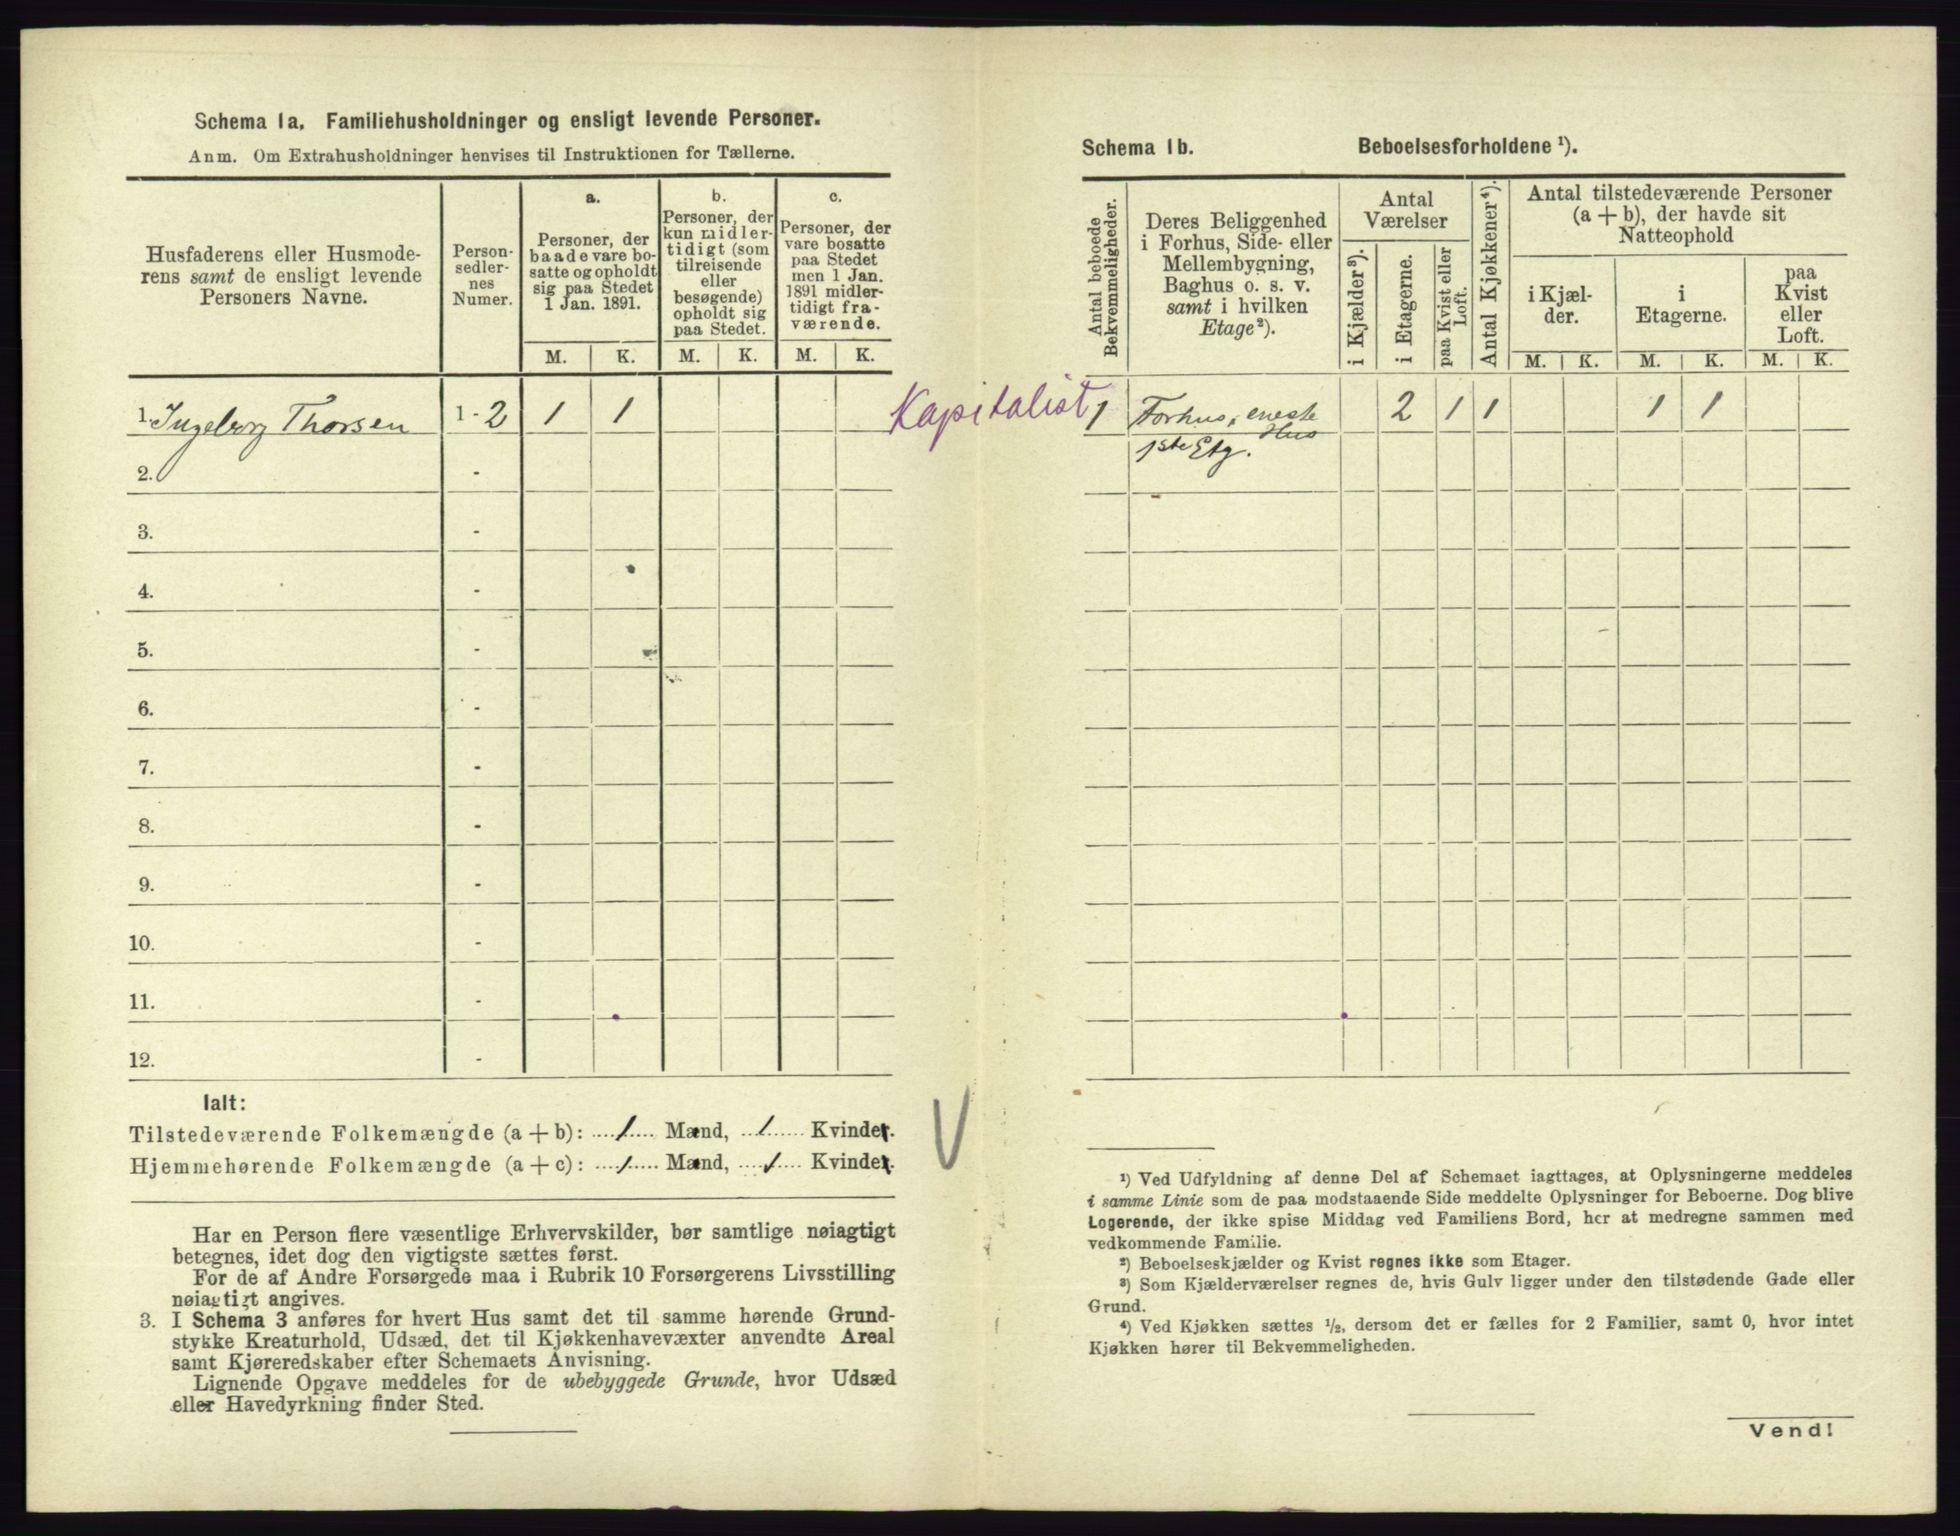 Schema 1a. Familiehusholdninger og ensligt levende Personer.
Anm. Om Extrahusholdninger henvises til Instruktionen for Tællerne.
Husfaderens eller Husmode-
rens samt de ensligt levende
Personers Navne.
Person-
sedler-
nes
Numer.
a.
Personer, der
baade vare bo-
satte og opholdt
sig paa Stedet
1 Jan. 1891.
b.
Personer, der
kun midler-
tidigt (som
tilreisende
eller
besøgende)
opholdt sig
paa Stedet.
c.
Personer, der
vare bosatte
paa Stedet
men 1 Jan.
1891 midler-
tidigt fra-
værende.
M. K. M. K. M. K.
1. Ingeborg Thorsen 1 - 2 1 1
2. -
3. -
4. -
5. -
6. -
7. -
8. -
9. -
10. -
11. -
12. -
Ialt:
Tilstedeværende Folkemængde (a + b): 1 Mænd, 1 Kvinder.
Hjemmehørende Folkemængde (a + c): 1 Mænd, 1 Kvinder.
Har en Person flere væsentlige Erhvervskilder, bør samtlige nøiagtigt
betegnes, idet dog den vigtigste sættes først.
For de af Andre Forsørgede maa i Rubrik 10 Forsørgerens Livsstilling
nøiagtigt angives.
3. I Schema 3 anføres for hvert Hus samt det til samme hørende Grund-
stykke Kreaturhold, Udsæd, det til Kjøkkenhavevæxter anvendte Areal
samt Kjøreredskaber efter Schemaets Anvisning.
Lignende Opgave meddeles for de ubebyggede Grunde, hvor Udsæd
eller Havedyrkning finder Sted.
V
Schema 1b. Beboelsesforholdene ¹).
Antal beboede
Bekvemmeligheder.
Deres Beliggenhed
i Forhus, Side- eller
Mellembygning,
Baghus o. s. v.
samt i hvilken
Etage²).
Antal
Værelser
i Kjælder³).
i Etagerne.
paa Kvist eller
Loft.
Antal Kjøkkener⁴).
Antal tilstedeværende Personer
(a + b), der havde sit
Natteophold
i Kjæl-
der.
i
Etagerne.
paa
Kvist
eller
Loft.
M. K. M. K. M. K.
Kapitalist 1 Forhus, eneste 2 1 1 1 1
Hus
1ste Etg.
¹) Ved Udfyldning af denne Del af Schemaet iagttages, at Oplysningerne meddeles
i samme Linie som de paa modstaaende Side meddelte Oplysninger for Beboerne. Dog blive
Logerende, der ikke spise Middag ved Familiens Bord, her at medregne sammen med
vedkommende Familie.
²) Beboelseskjælder og Kvist regnes ikke som Etager.
³) Som Kjælderværelser regnes de, hvis Gulv ligger under den tilstødende Gade eller
Grund.
⁴) Ved Kjøkken sættes ¹/₂, dersom det er fælles for 2 Familier, samt 0, hvor intet
Kjøkken hører til Bekvemmeligheden.
Vend!